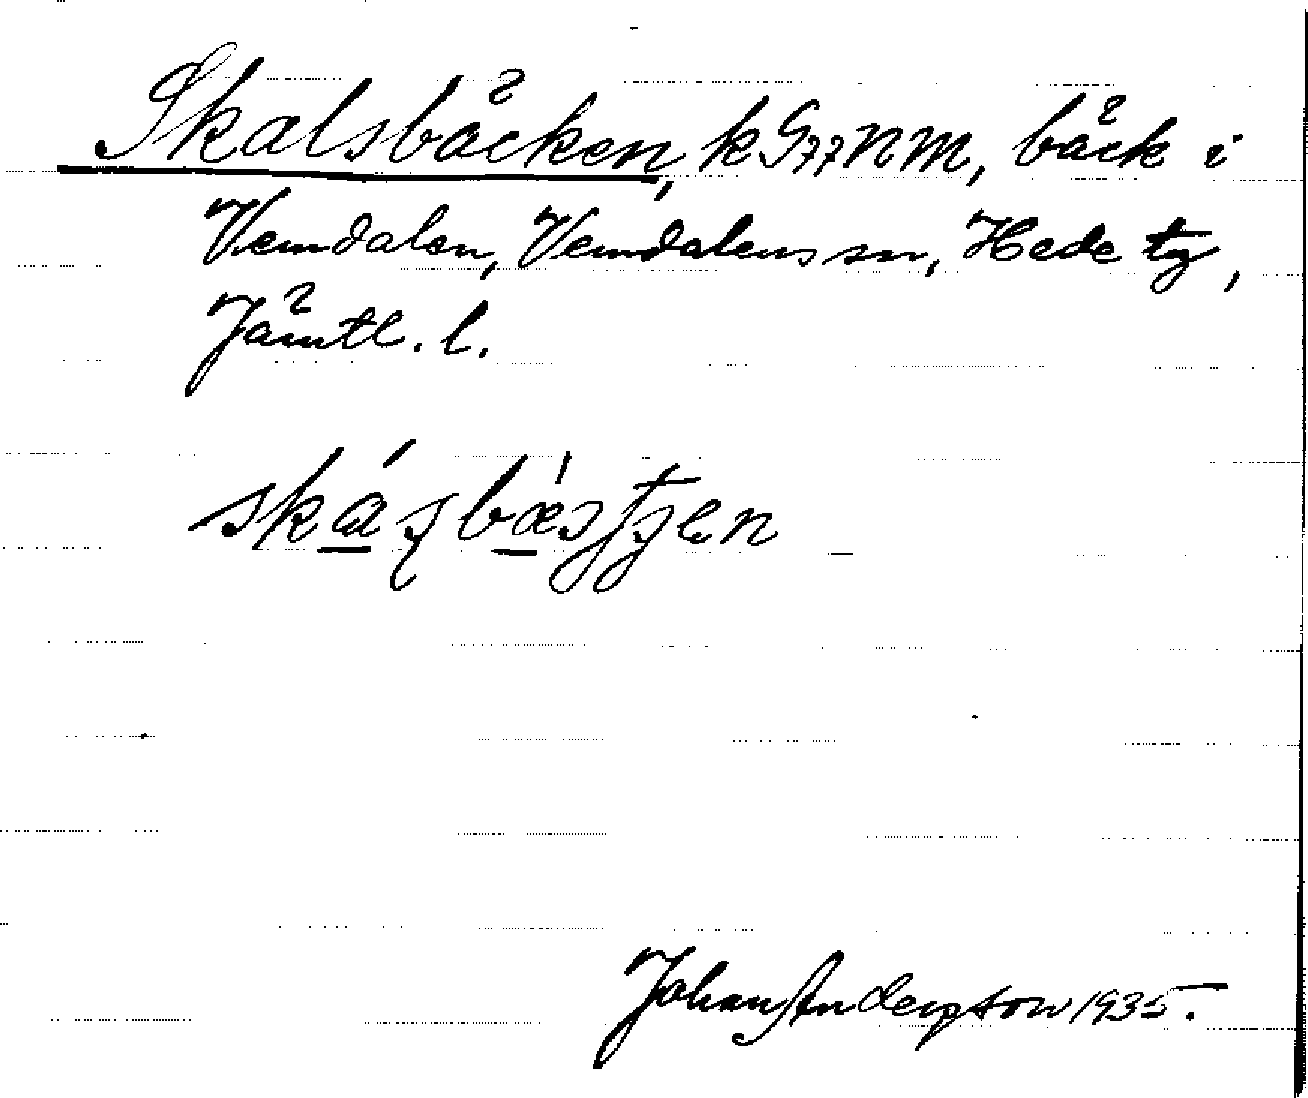 Skalsbäcken, kG77NM, bäck i
Vemdalen, Vemdalens sn, Hede tg,
Jämtl. l.
Johan Anderson 1935.